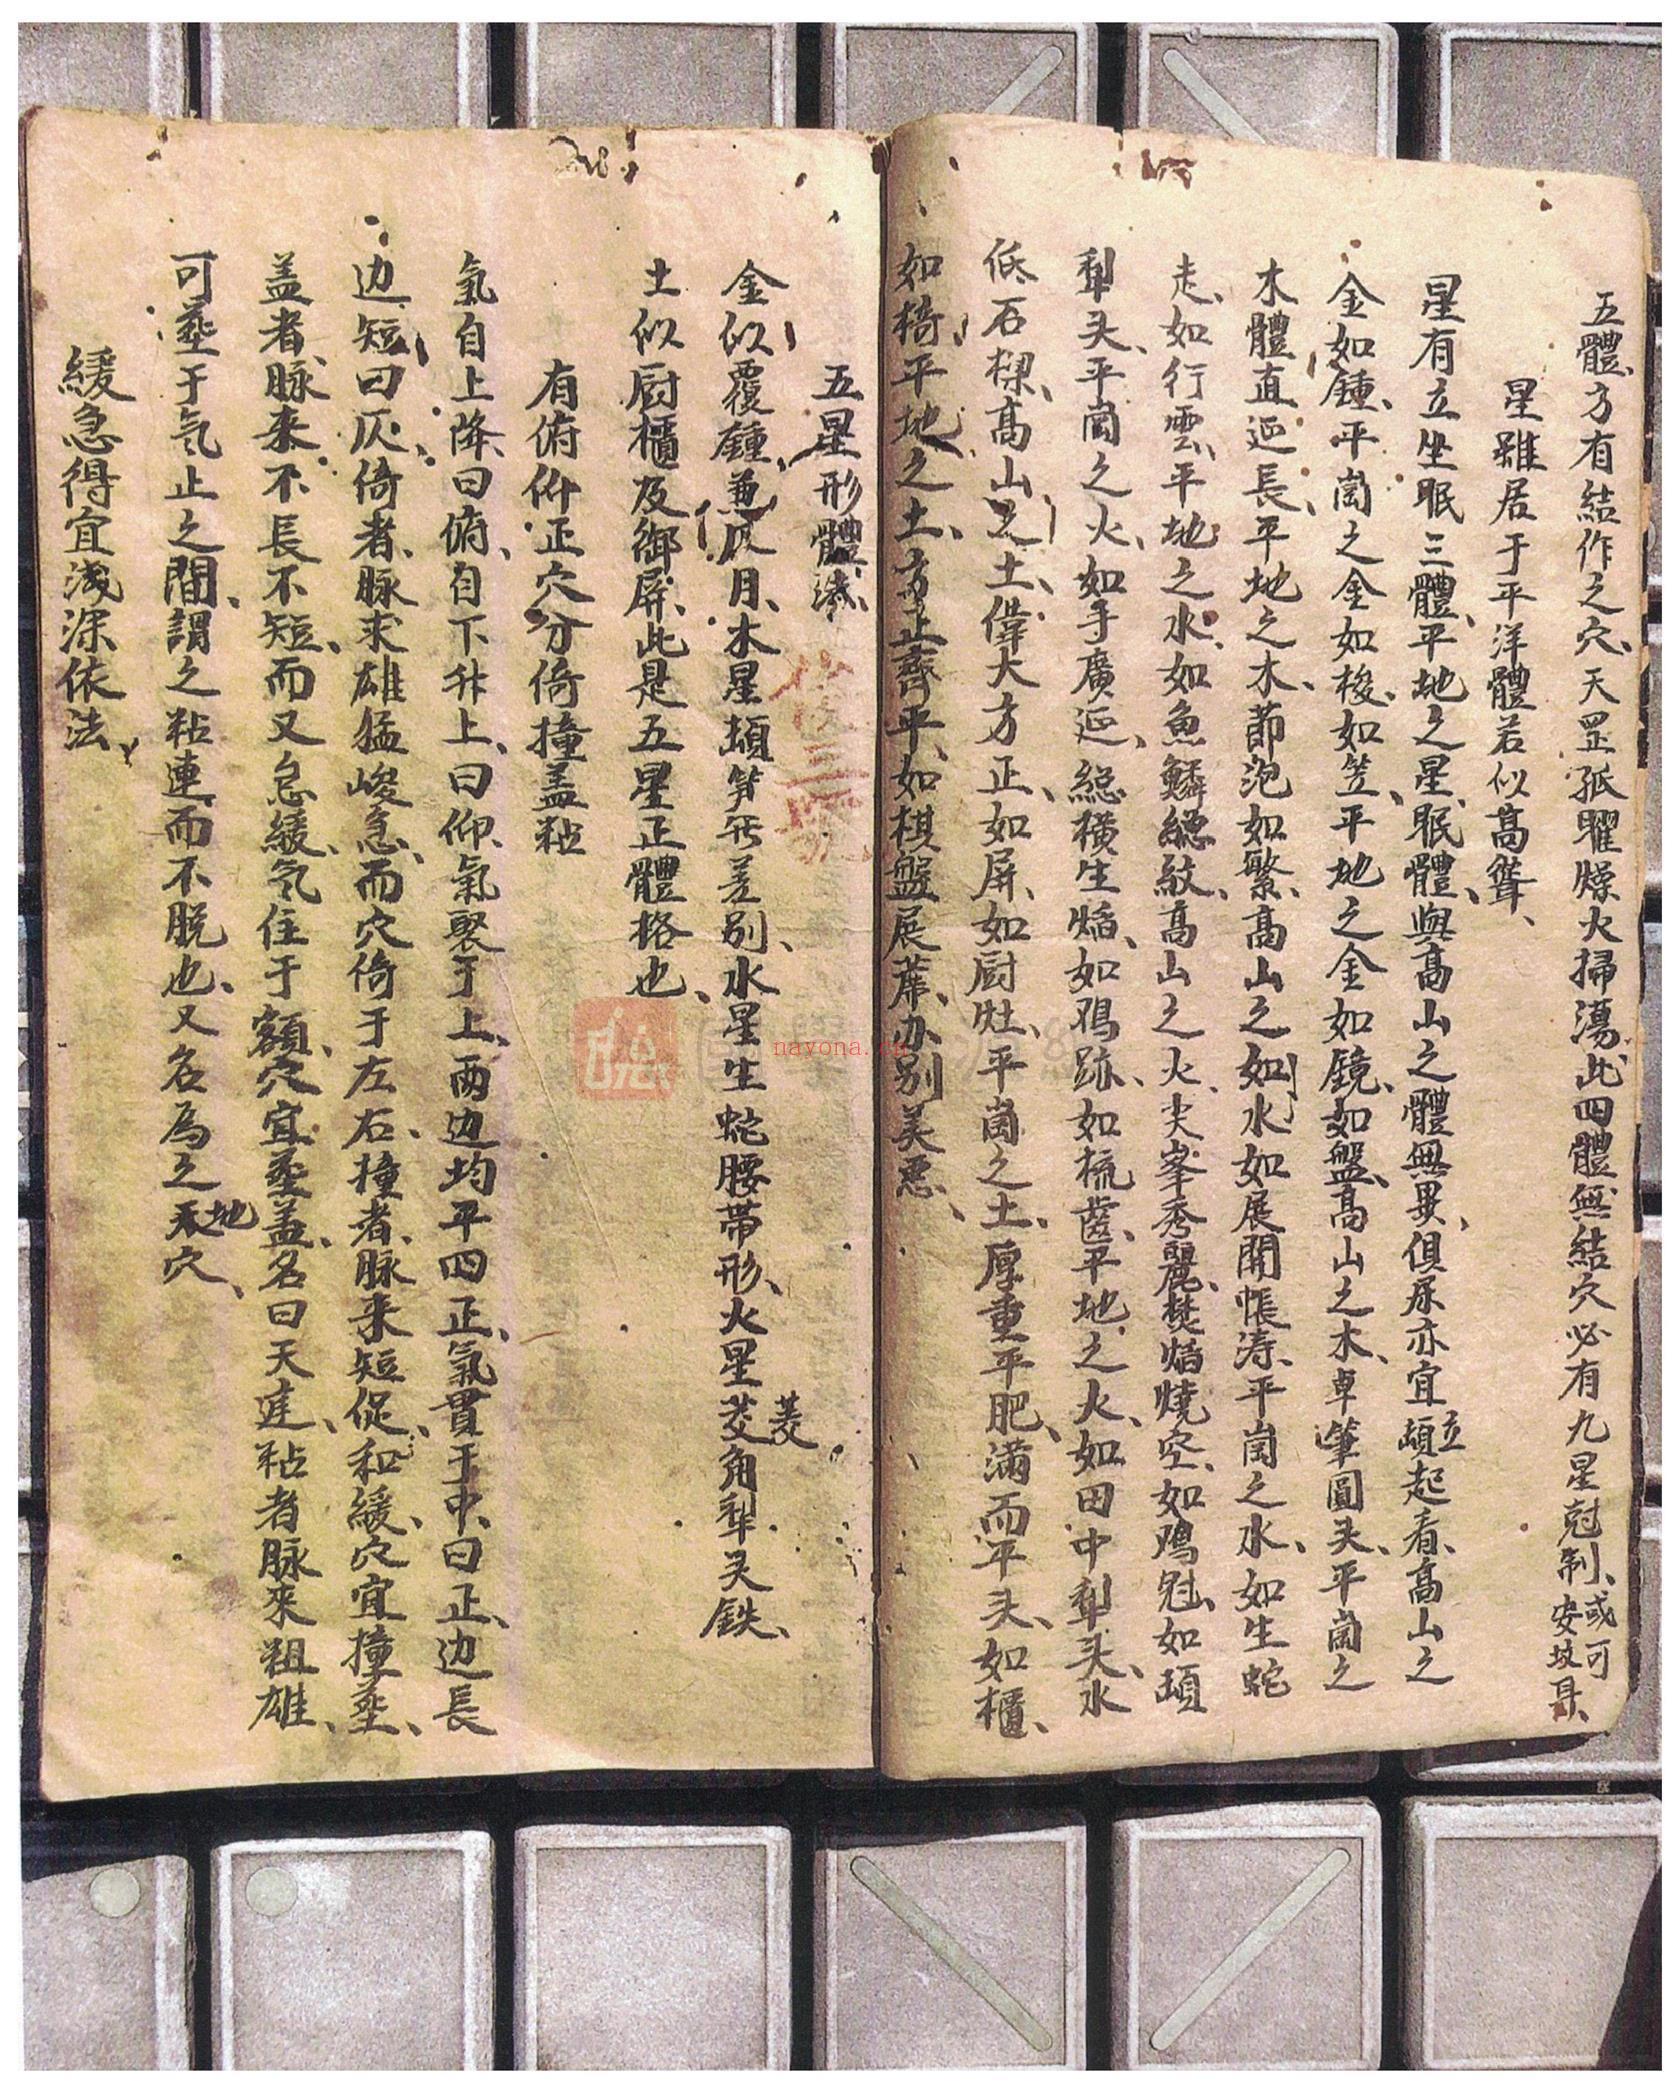 五體、方有結作之穴、天罡孤曜燥火掃蕩、此四體無結穴必有九星尅制、或可安坟耳、
星雖居于平洋體若似高聳、
星有立坐眠三體、平地之星、眠體、與高山之體無異、俱亦宜立起看、高山之
金如鍾、平崗之金如梭、如笠、平地之金如鏡、如盤、高山之木、卓筆圓头、平崗之
木體直延長、平地之木、節泡如繫、高山之水如展開帳涛、平崗之水、如生蛇
走、如行雲、平地之水、如魚鱗縐紋、高山之火、尖峯秀麗、焚焰燒空、如鳮冠、如
犁头、平崗之火、如手廣延、縱横生焰、如鳮跡、如梳齒、平地之火、如田中犁头、水
低石樑、高山之土、偉大方正、如屏、如厨灶、平崗之土、厚重平肥、满而平头、如櫃、
如椅、平地之土、方正齊平、如棋盤展蓆、办别美恶、
五星形體法、
金似覆鍾兼仄月、木星頓笋無差别、水星生蛇腰带形、火星菱角犁头鉄、
土似厨櫃及御屏、此是五星正體格也、
有俯仰正穴分倚撞盖粘
氣自上降、曰俯、自下升上、曰仰、氣聚于上、两边均平四正、氣貫于中、曰正、边長
边短、曰仄、倚者、脉来雄猛峻急、而穴倚于左右、撞者、脉来短促、和緩、穴宜撞塟、
盖者、脉来不長不短、而又急緩、氣住于額、穴宜塟盖、名曰天㢓、粘者脉来粗雄、
可塟于氣止之間、謂之粘連而不脱也、又名為之地穴、
緩急得宜浅深依法、
nayona.cn